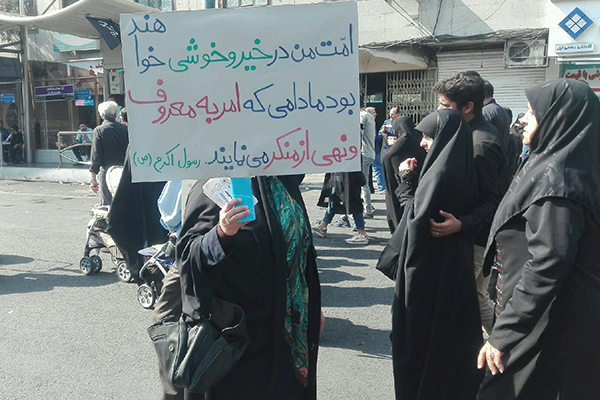 امّت من در خیر و خوشی خوا
هند
بود مادامی که امر به معروف
و نهی از منکر می نمایند. رسول اکرم (ص)